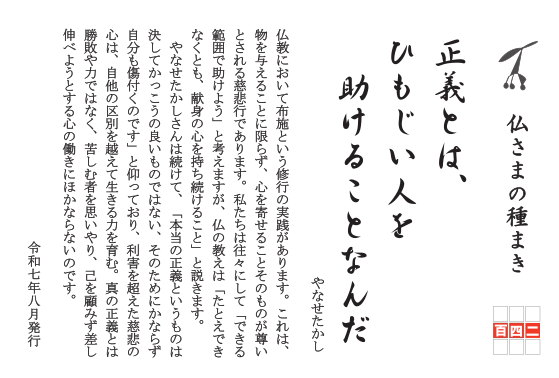 仏さまの種まき
百四二
正義とは、
ひもじい人を
助けることなんだ
やなせたかし
仏教において布施という修行の実践があります。これは、
物を与えることに限らず、心を寄せることそのものが尊い
とされる慈悲行であります。私たちは往々にして「できる
範囲で助けよう」と考えますが、仏の教えは「たとえでき
なくとも、献身の心を持ち続けること」と説きます。
やなせたかしさんは続けて、「本当の正義というものは
決してかっこうの良いものではない、そのためにかならず
自分も傷付くのです」と仰っており、利害を超えた慈悲の
心は、自他の区別を越えて生きる力を育む。真の正義とは
勝敗や力ではなく、苦しむ者を思いやり、己を顧みず差し
伸べようとする心の働きにほかならないのです。
令和七年八月発行